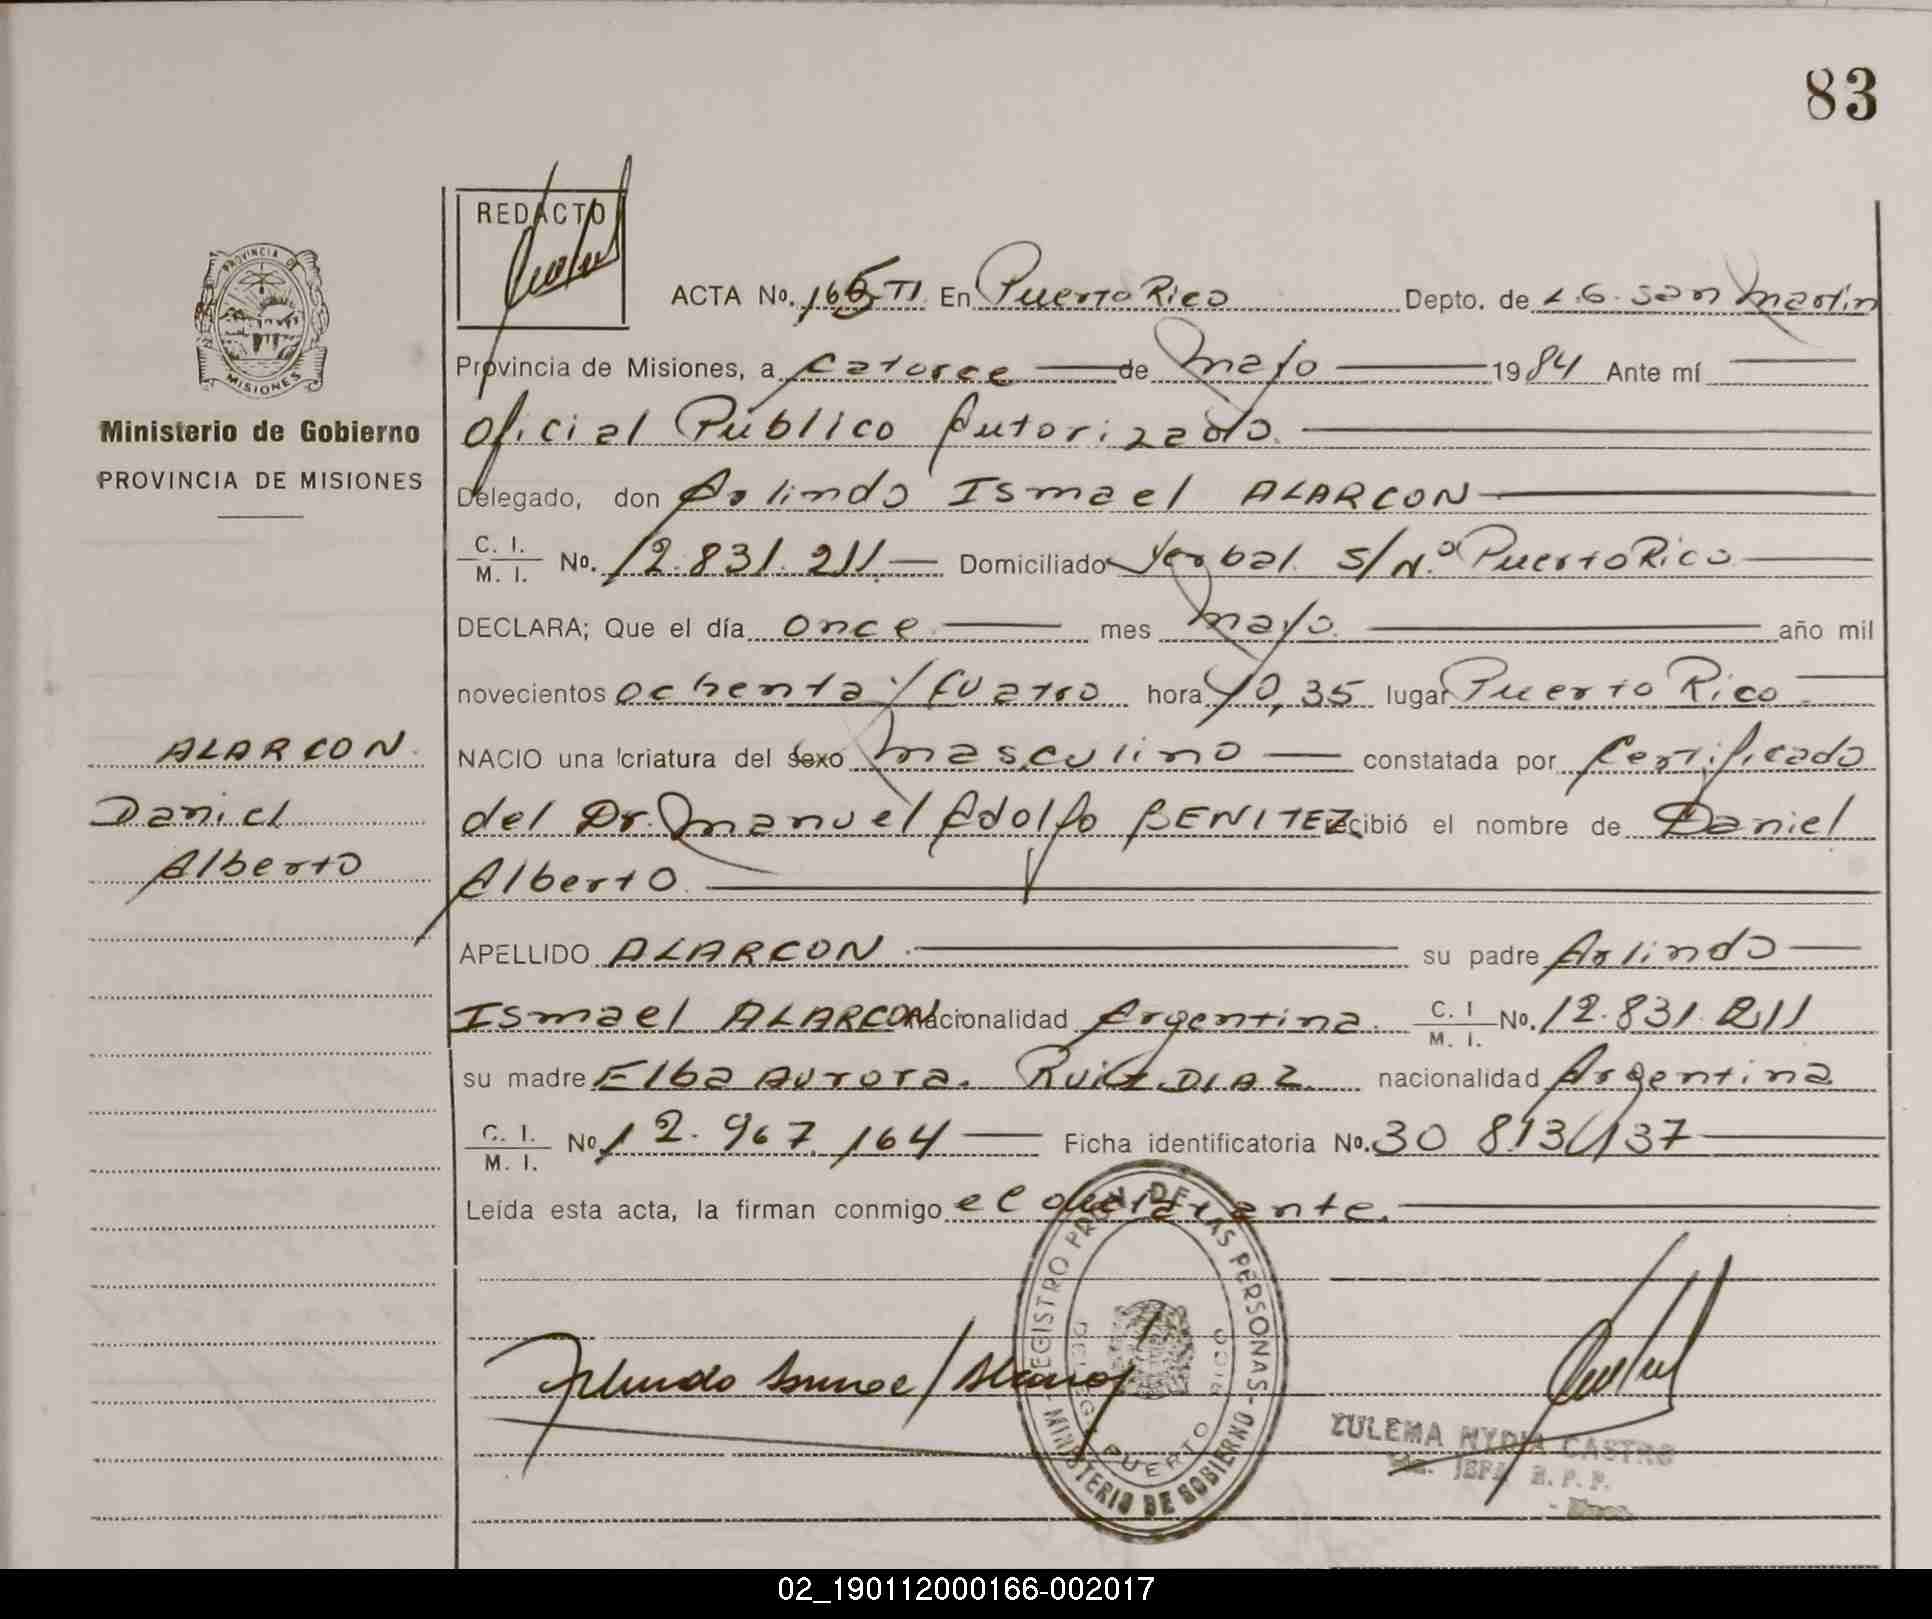 83
REDACTO
PROVINCIA DE
MISIONES
Ministerio de Gobierno
PROVINCIA DE MISIONES
ACTA No. 165 TI En Puerto Rico Depto. de L.G. San Martín
Provincia de Misiones, a catorce de mayo 1984 Ante mí
Oficial Público Autorizado.
Delegado, don Arlindo Ismael ALARCON
C. I. / M. I. No. 12.831.211 Domiciliado Yerbal S/N.º Puerto Rico
DECLARA; Que el día once mes mayo año mil
novecientos ochenta y cuatro hora 10,35 lugar Puerto Rico
NACIO una criatura del sexo masculino constatada por Certificado
del Dr. Manuel Adolfo BENITEZ recibió el nombre de Daniel
Alberto
ALARCON
Daniel
Alberto
APELLIDO ALARCON su padre Arlindo
Ismael ALARCON nacionalidad Argentina C. I / M. I. No. 12.831.211
su madre Elba Aurora. Ruiz DIAZ nacionalidad Argentina
C. I. / M. I. No 12.967.164 Ficha identificatoria No. 30 813/137
Leída esta acta, la firman conmigo el declarante.
REGISTRO DE LAS PERSONAS
MINISTERIO DE GOBIERNO
DELEG. PUERTO RICO
Arlindo Ismael Alarcon
ZULEMA NYDIA CASTRO
R. P. P.
02_190112000166-002017